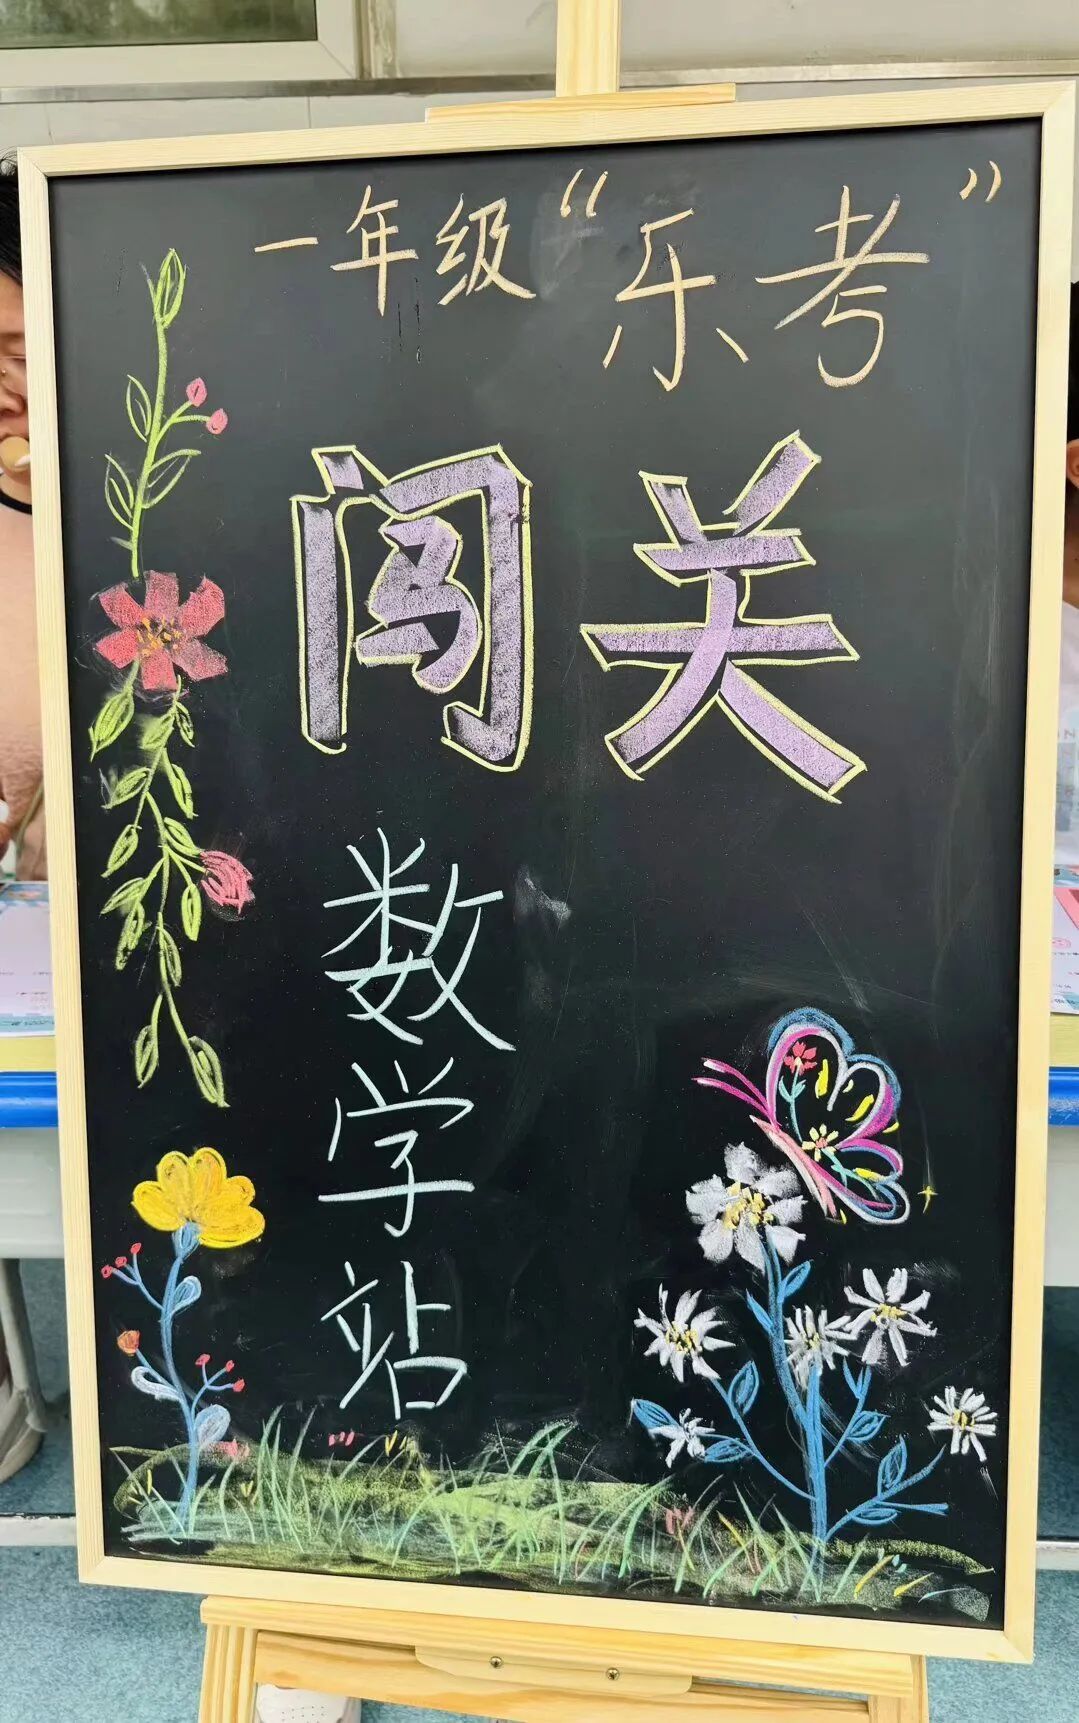 一年级“乐考”
闯关
数学站